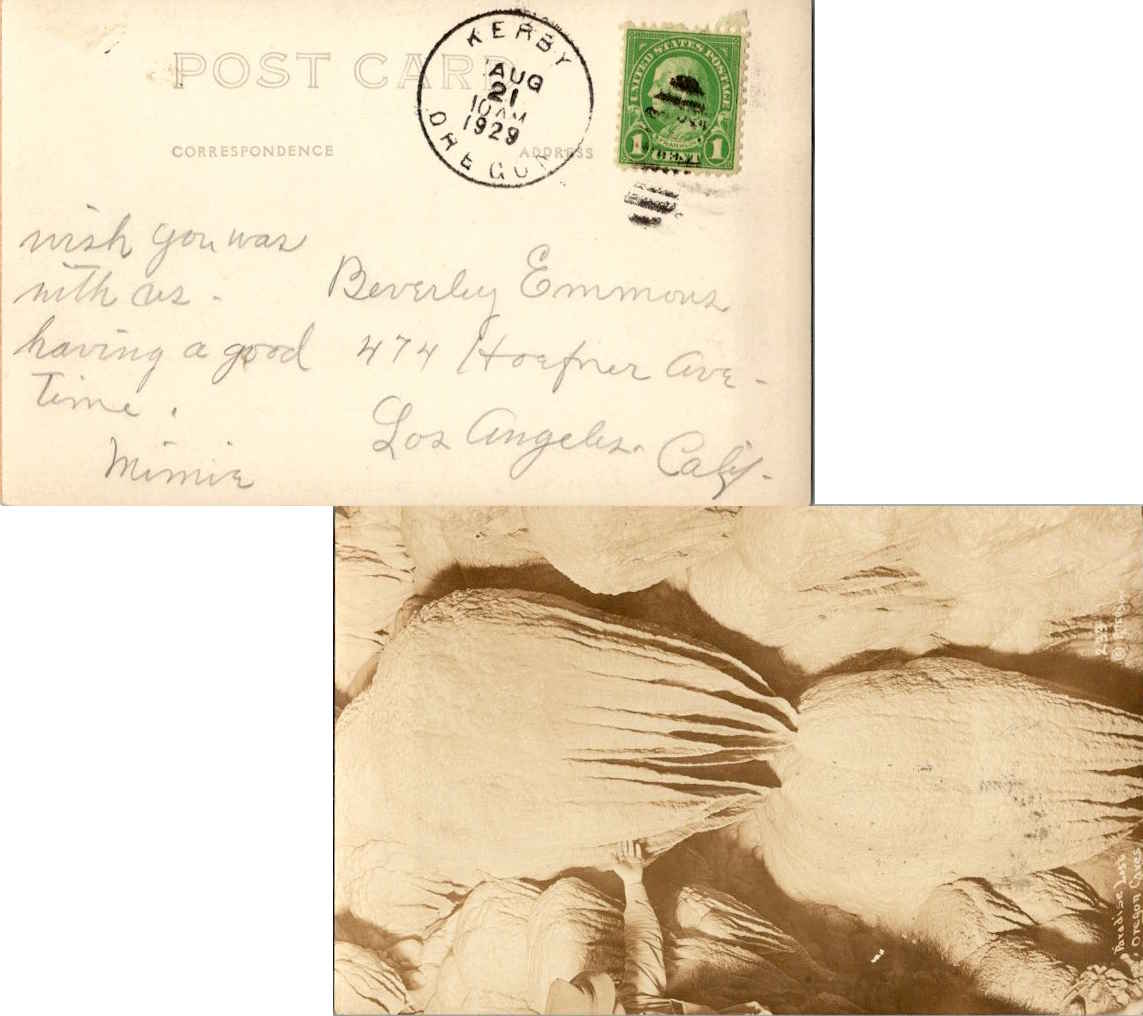 POST CARD
CORRESPONDENCE
ADDRESS
KERBY
AUG
21
10 AM
1929
OREGON
UNITED STATES POSTAGE
FRANKLIN
1 CENT 1
wish you was
with us.
having a good
time.
Mimie
Beverley Emmons
474 Hoefner Ave-
Los Angeles. Calif.
Paradise Lost
Oregon Caves